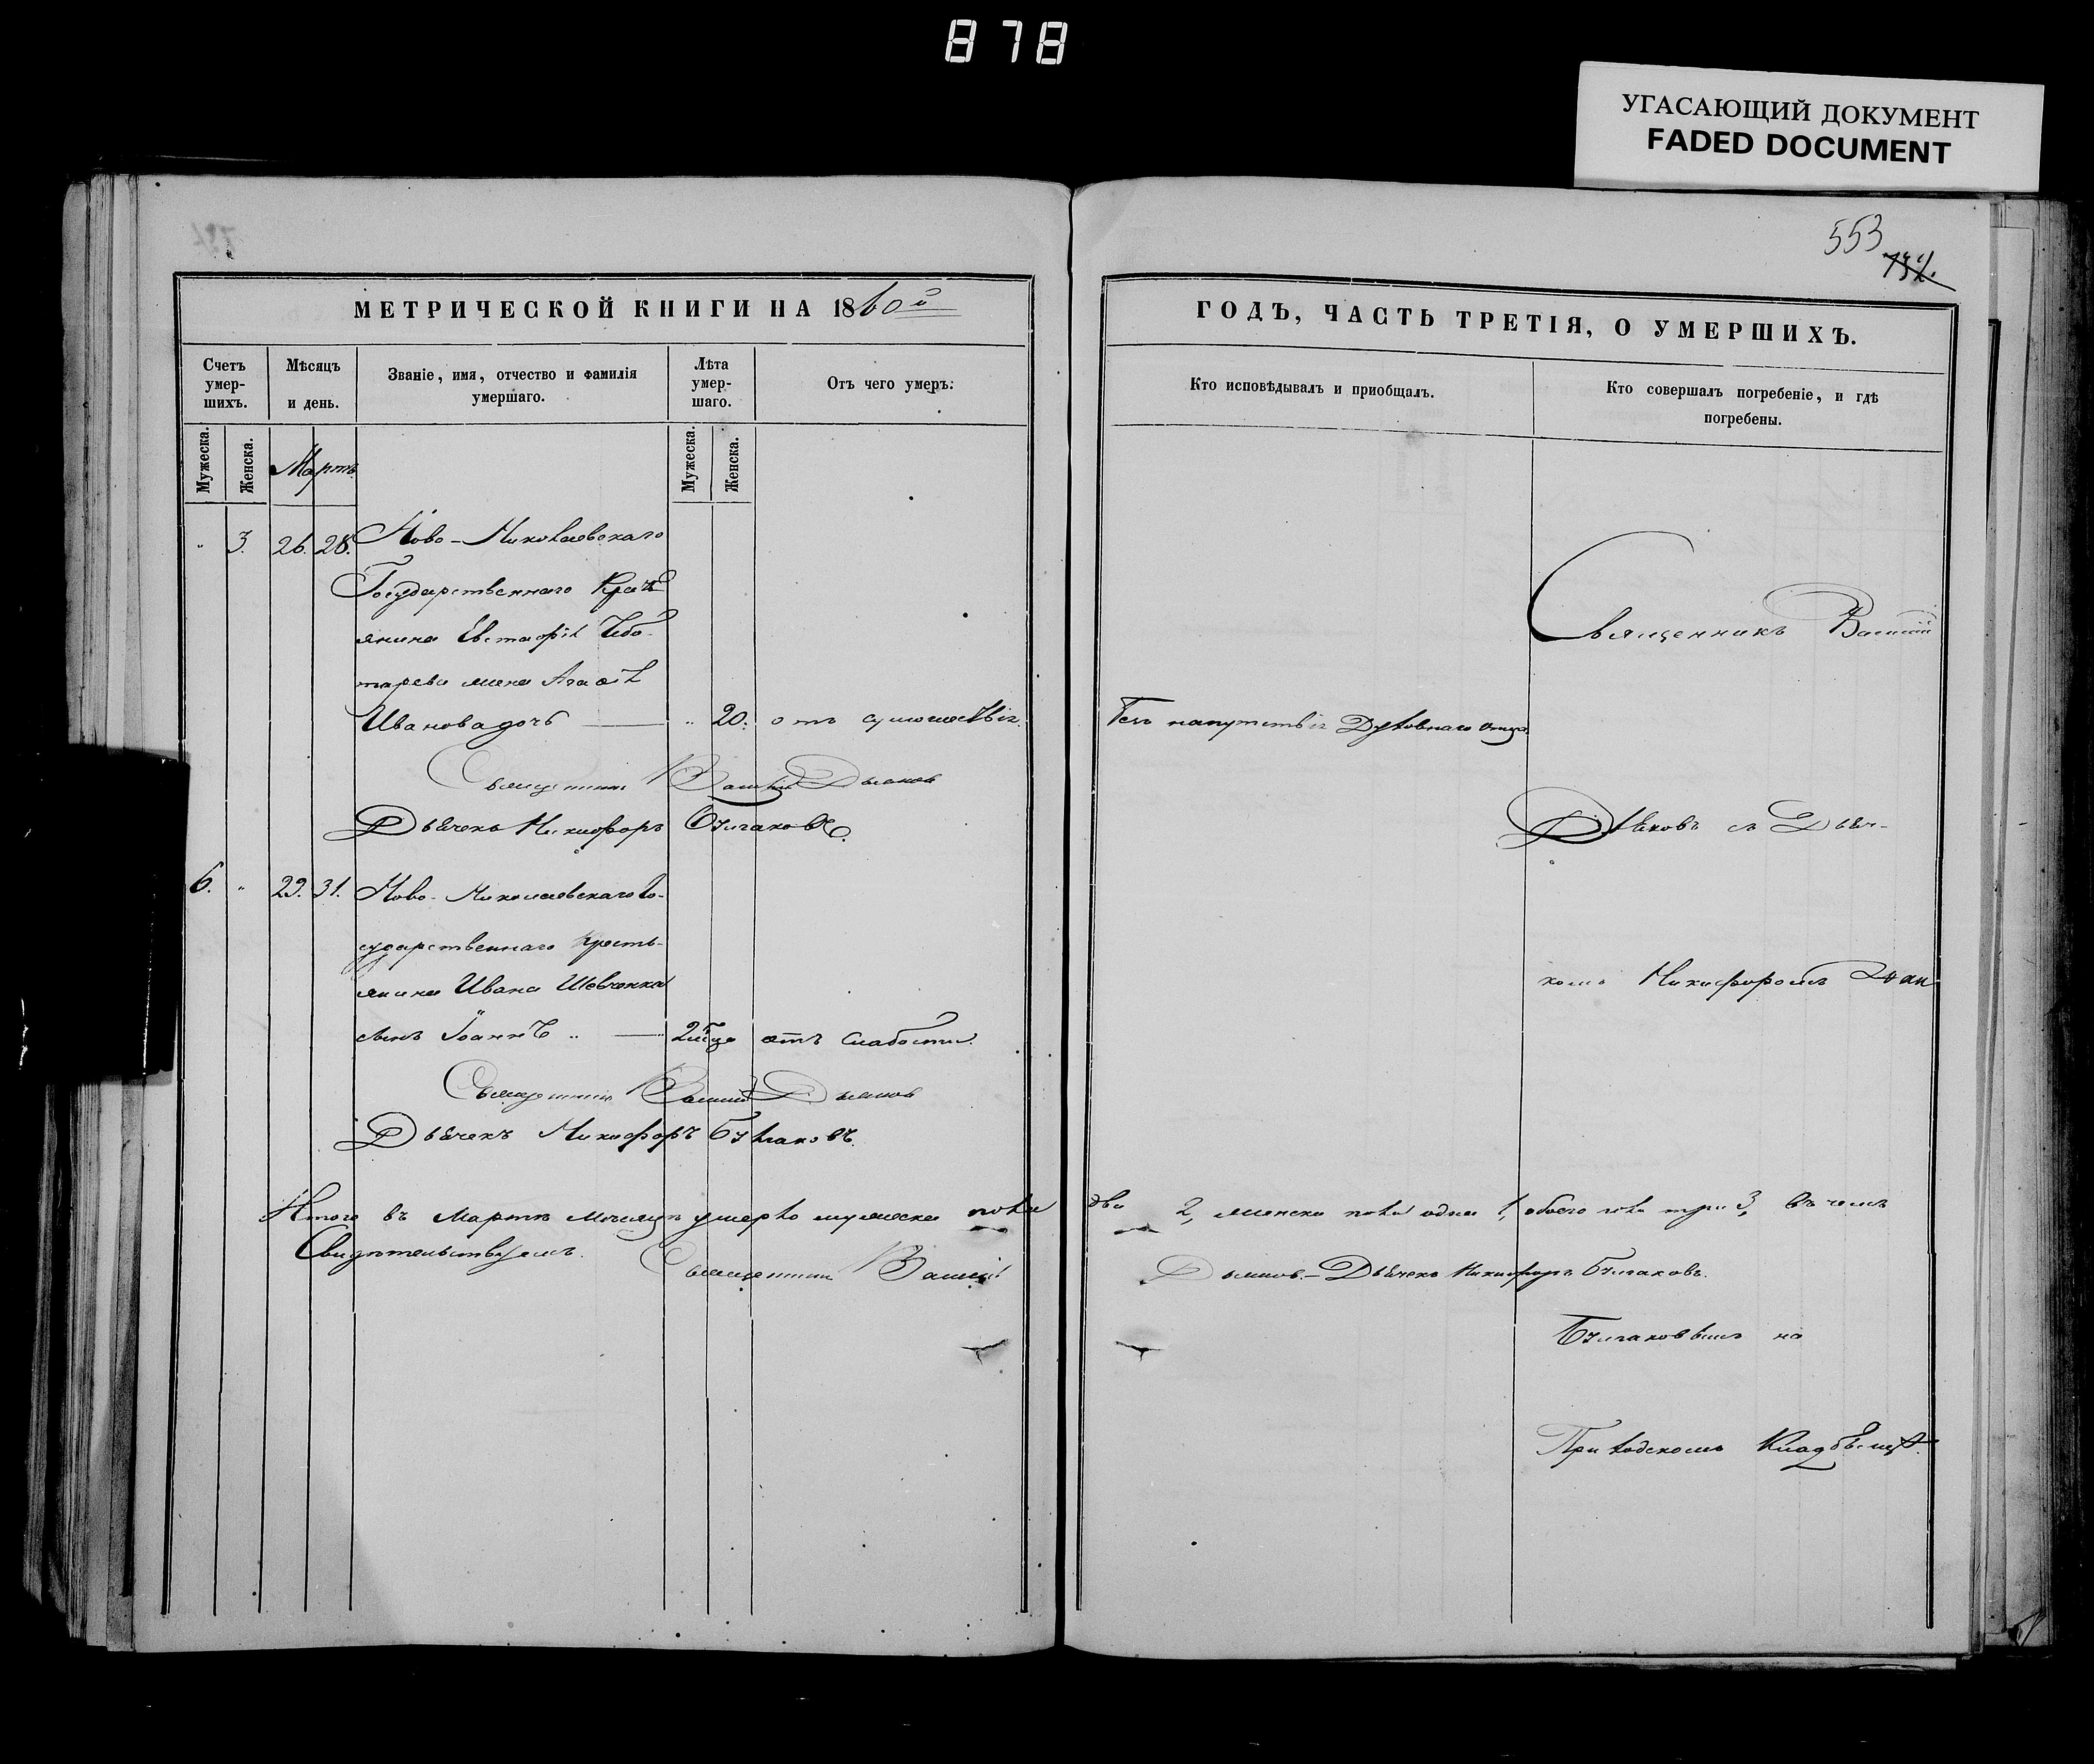 878
УГАСАЮЩИЙ ДОКУМЕНТ
FADED DOCUMENT
553
МЕТРИЧЕСКОЙ КНИГИ НА 1860й
Счетъ умер-шихъ.
Мѣсяцъ и день.
Званіе, имя, отчество и фамилія умершаго.
Лѣта умер-шаго.
Отъ чего умеръ:
Мужеска.
Женска.
Мартъ
Мужеска.
Женска.
" 3. 26. 28. Ново-Николаевскаго
Государственнаго Крест
янина Евстафія Чебо-
тарева жена Агафія
Иванова дочь " 20. отъ сумашествія.
Священникъ Василій
Дьячекъ Никифоръ Булгаковъ.
6. " 29. 31. Ново-Николаевскаго Го-
сударственнаго Кресть-
янина Ивана Шевченка
сынъ Іоаннъ " отъ слабости.
Священникъ Василій
Дьячекъ Никифоръ Булгаковъ.
Итого въ Мартѣ месяцѣ умерло мужеска пола
Свидѣтельствуемъ. Священникъ Василій
ГОДЪ, ЧАСТЬ ТРЕТІЯ, О УМЕРШИХЪ.
Кто исповѣдывалъ и приобщалъ.
Кто совершалъ погребеніе, и гдѣ погребены.
Священникъ Василій
Безъ напутствія Духовнаго Отца
съ Дьяч-
комъ Никифоромъ
два 2, женска пола одна 1, обоего пола три 3, въ чемъ
Дьячекъ Никифоръ Булгаковъ.
Булгаковымъ на
Приходскомъ Кладбищѣ.